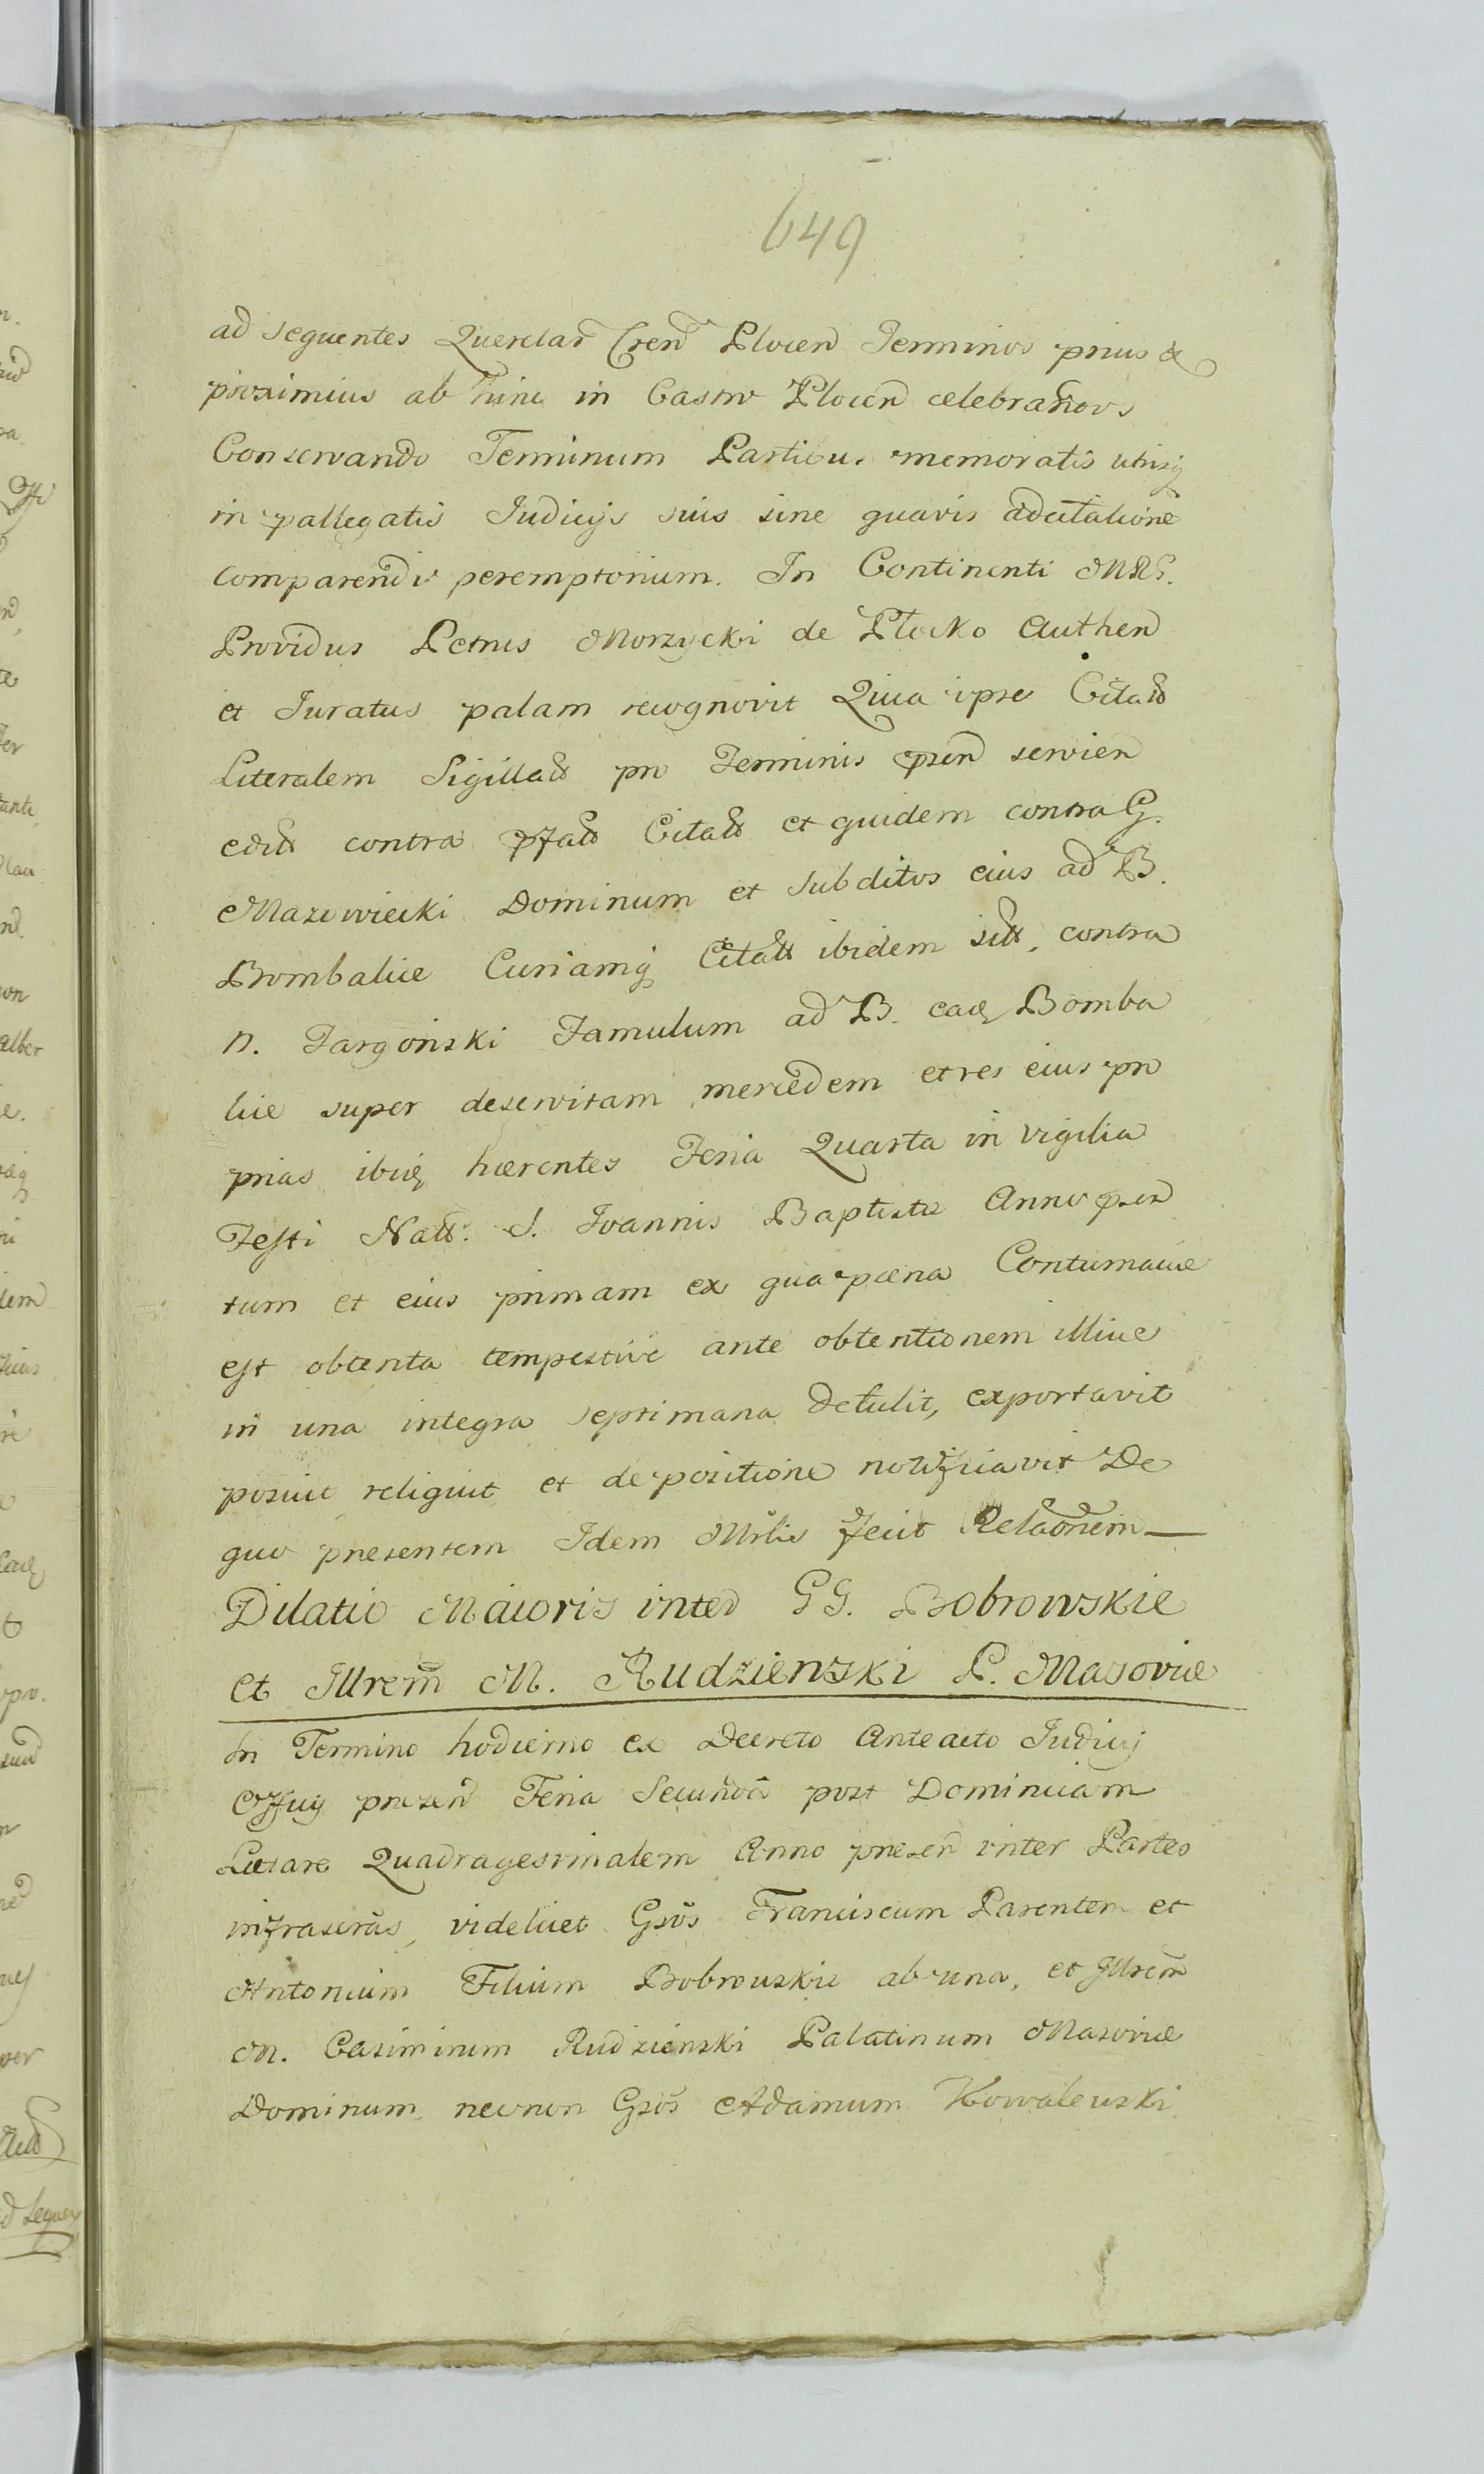 649
ad sequentes Querelar Cren Plocen Terminos prius &
proximius ab hinc in Castro Plocen celebrandos
Conservando Terminum Partibus memoratis utrisq
in pallegatis Judicijs suis sine quavis adcitatione
comparendi peremptorium. In Continenti MRG.
Providus Petrus Morzycki de Plocko Authen
et Juratus palam recognovit Quia ipse Citatt
Literalem Sigillatt pro Terminis psen servien
editt contra pfatt Citatt et quidem contra G.
Mazowiecki Dominum et subditos eius ad B.
Bombalice Curiamq Citatt ibidem sitt, contra
N. Targonski Famulum ad B. eadq Bomba
lice super deservitam mercedem et res eius pro
prias ibiq hærentes Feria Quarta in vigilia
Festi Natt: S. Joannis Baptistæ Anno psen
tum et eius primam ex qua pæna Contumaciæ
est obtenta tempestive ante obtentionem illius
in una integra septimana detulit, exportavit
posuit reliquit et depositione notificavit De
quo presentem Idem Mrlis fecit Relaonem —
Dilatio Maioris inter GG. Bobrowskie
et Illrem M. Rudzienski P. Masoviæ
In Termino hodierno ex Decreto Anteacto Judicij
Officij presen Feria Secunda post Dominicam
Lætare Quadragesimalem Anno presen inter Partes
infrascras, videlicet Gsos Franciscum Parentem et
Antonium Filium Bobrowskie ab una, et Illrem
M. Casimirum Rudzienski Palatinum Masoviæ
Dominum, necnon Gsos Adamum Kowalewski